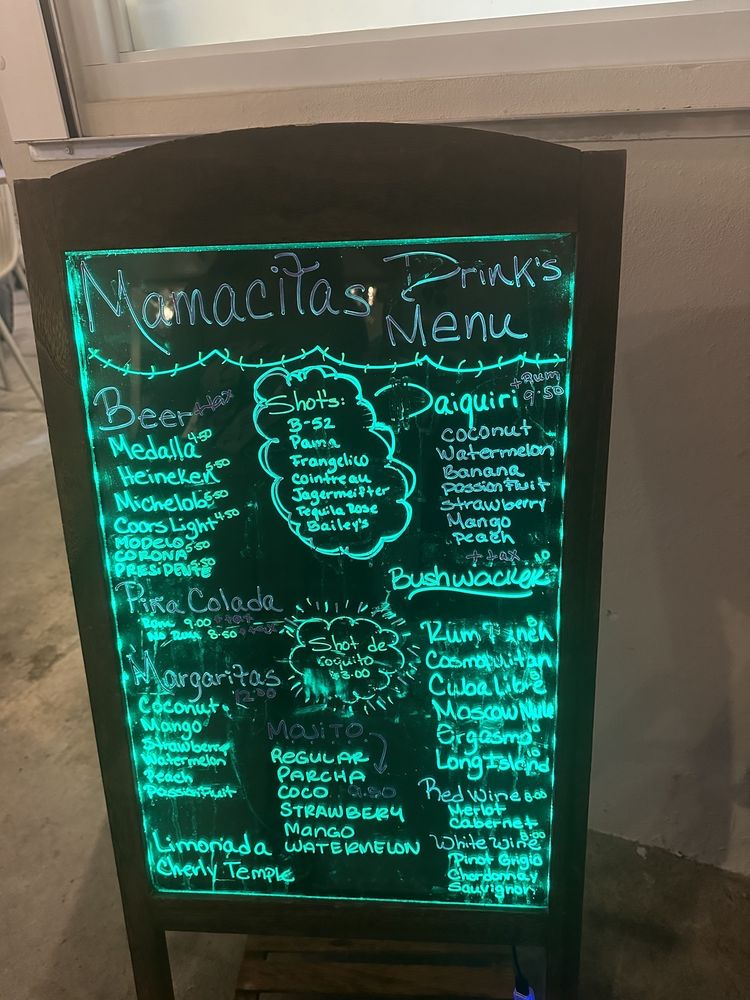 Mamacitas Drink's
Menu
Beer + tax
Medalla 4.50
Heineken 5.50
Michelob 5.50
Coors Light 4.50
MODELO
CORONA 5.50
PRESIDENTE
Piña Colada
Rom 9.00 + tax
No Rum 8.50 + tax
Margaritas
12.00
Coconut
Mango
Strawberry
Watermelon
Peach
Passion Fruit
Limonada
Cherly Temple
Shot's:
B-52
Pama
Frangelico
Cointreau
Jagermeifter
Tequila Rose
Bailey's
Shot de
coquito
$3.00
Mojito
REGULAR
PARCHA
COCO 9.50
STRAWBERY
MANGO
WATERMELON
Daiquiri + Rum 9.50
Coconut
Watermelon
Banana
Passion Fruit
Strawberry
Mango
Peach
+ tax
Bushwacker 10
Rum Punch
Cosmopolitan
Cuba Libre
Moscow Mule
Orgasmo
Long Island
Red Wine 8.00
Merlot
Cabernet
White Wine 8.00
Pinot Grigio
Chardonnay
Sauvignon